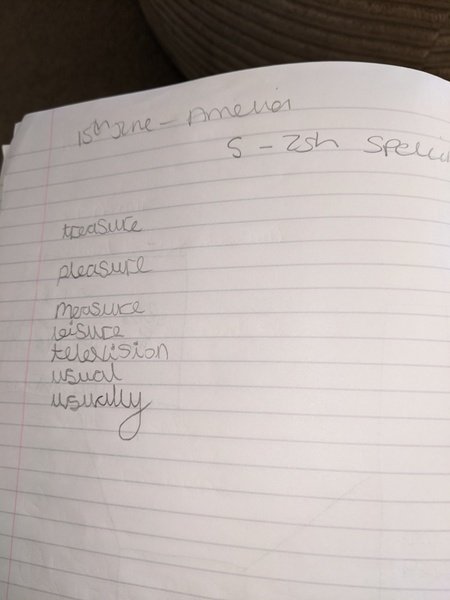 15th June - Amelia
S - Zsh Spelli
treasure
pleasure
measure
leisure
television
usual
usually